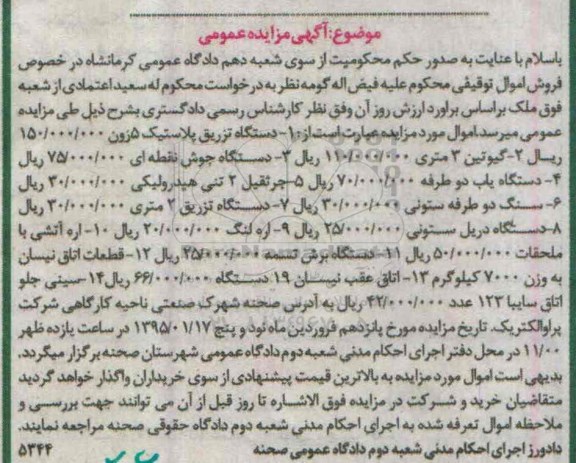 موضوع: آگهی مزایده عمومی
باسلام با عنایت به صدور حکم محکومیت از سوی شعبه دهم دادگاه عمومی کرمانشاه در خصوص
فروش اموال توقیفی محکوم علیه فیض اله گومه نظر به درخواست محکوم له سعید اعتمادی از شعبه
فوق ملک براساس براورد ارزش روز آن وفق نظر کارشناس رسمی دادگستری بشرح ذیل طی مزایده
عمومی میرسد. اموال مورد مزایده عبارت است از: ۱- دستگاه تزریق پلاستیک ۵زون ۱۵۰/۰۰۰/۰۰۰
ریال ۲-گیوتین ۳ متری ۱۱۰/۰۰۰/۰۰۰ ریال ۳- دستگاه جوش نقطه ای ۷۵/۰۰۰/۰۰۰ ریال
۴- دستگاه یاب دو طرفه ۷۰/۰۰۰/۰۰۰ ریال ۵-جرثقیل ۲ تنی هیدرولیکی ۳۰/۰۰۰/۰۰۰ ریال
۶- سنگ دو طرفه ستونی ۳۰/۰۰۰/۰۰۰ ریال ۷- دستگاه تزریق ۲ متری ۳۰/۰۰۰/۰۰۰ ریال
۸-دستگاه دریل ستونی ۲۵/۰۰۰/۰۰۰ ریال ۹- اره لنگ ۲۰/۰۰۰/۰۰۰ ریال ۱۰- اره آتشی با
ملحقات ۵۰/۰۰۰/۰۰۰ ریال ۱۱- دستگاه برش تسمه ۲۵/۰۰۰/۰۰۰ ریال ۱۲- قطعات اتاق نیسان
به وزن ۷۰۰۰ کیلوگرم ۱۳- اتاق عقب نیسان ۱۹ دستگاه ۶۶/۰۰۰/۰۰۰ ریال۱۴-سینی جلو
اتاق سایپا ۱۲۳ عدد ۴۲/۰۰۰/۰۰۰ ریال به آدرس صحنه شهرک صنعتی ناحیه کارگاهی شرکت
پرلوالکتریک. تاریخ مزایده مورخ پانزدهم فروردین ماه نود و پنج ۱۳۹۵/۰۱/۱۷ در ساعت یازده ظهر
۱۱/۰۰ در محل دفتر اجرای احکام مدنی شعبه دوم دادگاه عمومی شهرستان صحنه برگزار میگردد.
بدیهی است اموال مورد مزایده به بالاترین قیمت پیشنهادی از سوی خریداران واگذار خواهد گردید
متقاضیان خرید و شرکت در مزایده فوق الاشاره تا روز قبل از آن می توانند جهت بررسی و
ملاحظه اموال تعرفه شده به اجرای احکام مدنی شعبه دوم دادگاه حقوقی صحنه مراجعه نمایند.
دادورز اجرای احکام مدنی شعبه دوم دادگاه عمومی صحنه ۵۳۴۴